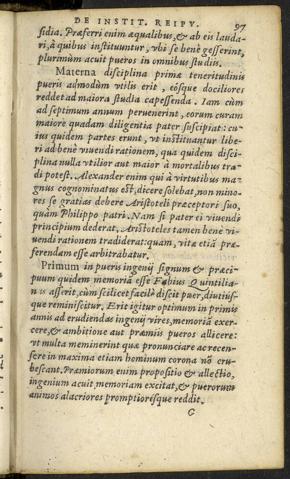 DE INSTIT. REIPV. 97
sidia. Præferri enim æqualibus, & ab eis lauda-
ri, à quibus instituuntur, vbi se benè gesserint,
plurimùm acuit pueros in omnibus studiis.
Materna disciplina primæ teneritudinis
pueris admodùm vtilis erit, eósque dociliores
reddet ad maiora studia capessenda. Iam cùm
ad septimum annum peruenerint, eorum curam
maiore quadam diligentia pater suscipiat: cu-
ius quidem partes erunt, vt instituantur libe-
ri ad benè viuendi rationem, qua quidem disci-
plina nulla vtilior aut maior à mortalibus tra-
di potest. Alexander enim qui à virtutibus ma-
gnus cognominatus est, dicere solebat, non mino-
res se gratias debere Aristoteli præceptori suo,
quàm Philippo patri. Nam si pater ei viuendi
principium dederat, Aristoteles tamen benè vi-
uendi rationem tradiderat: quam, vita etiã præ-
ferendam esse arbitrabatur.
Primum in pueris ingenij signum & præci-
puum quidem memoria esse Fabius Quintilia-
nus asserit, cùm scilicet facilè discit puer, diutiùs-
que reminiscitur. Erit igitur optimum in primis
annis ad erudiendas ingenij vires, memoriã exer-
cere, & ambitione aut præmiis pueros allicere:
vt multa meminerint quæ pronunciare ac recen-
sere in maxima etiam hominum corona nõ eru-
bescant. Præmiorum enim propositio & allectio,
ingenium acuit, memoriam excitat, & puerorum
animos alacriores promptiorésque reddit.
G